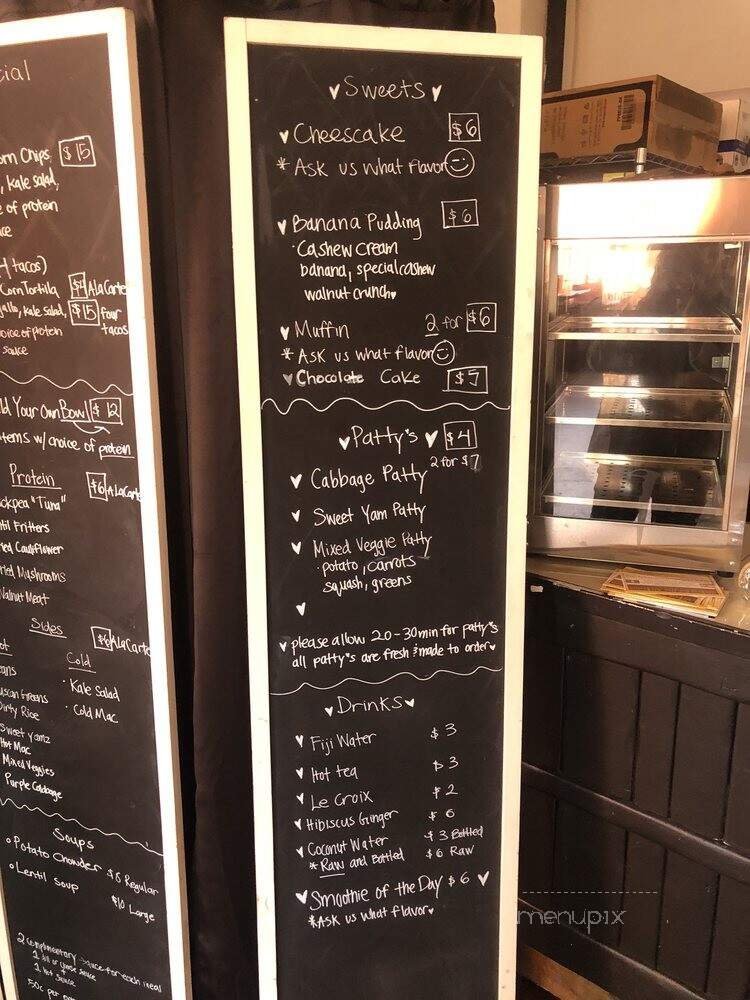 cial
orn Chips $15
, kale salad,
e of protein
ce
4 tacos)
Corn Tortilla $4 AlaCarte
gallo, kale salad, $15 four tacos
oice of protein
sauce
ld Your Own Bowl $12
items w/ choice of protein
Protein $6 AlaCarte
ickpea "Tuna"
ntil Fritters
ried Cauliflower
ried Mushrooms
Walnut Meat
Sides $6 AlaCarte
ot Cold
eans · Kale Salad
uscan Greens · Cold Mac
Dirty Rice
Sweet Yamz
Hot Mac
Mixed Veggies
Purple Cabbage
Soups
Potato Chowder $6 Regular
Lentil Soup $10 Large
2 complimentary sauce for each meal
1 Hot Sauce
50¢ per
♥ Sweets ♥
♥ Cheescake $6
* Ask us what flavor
♥ Banana Pudding $6
· Cashew Cream
banana, special cashew
walnut crunch♥
♥ Muffin 2 for $6
* Ask us what flavor
♥ Chocolate Cake $7
♥ Patty's ♥ $4
2 for $7
♥ Cabbage Patty
♥ Sweet Yam Patty
♥ Mixed Veggie Patty
· potato, carrots
squash, greens
♥
♥ please allow 20-30min for patty's
all patty's are fresh & made to order♥
♥ Drinks ♥
♥ Fiji Water $3
♥ Hot tea $3
♥ Le Croix $2
♥ Hibiscus Ginger $6
♥ Coconut Water $3 Bottled
* Raw and Bottled $6 Raw
♥ Smoothie of the Day $6 ♥
* Ask us what flavor♥
menupix